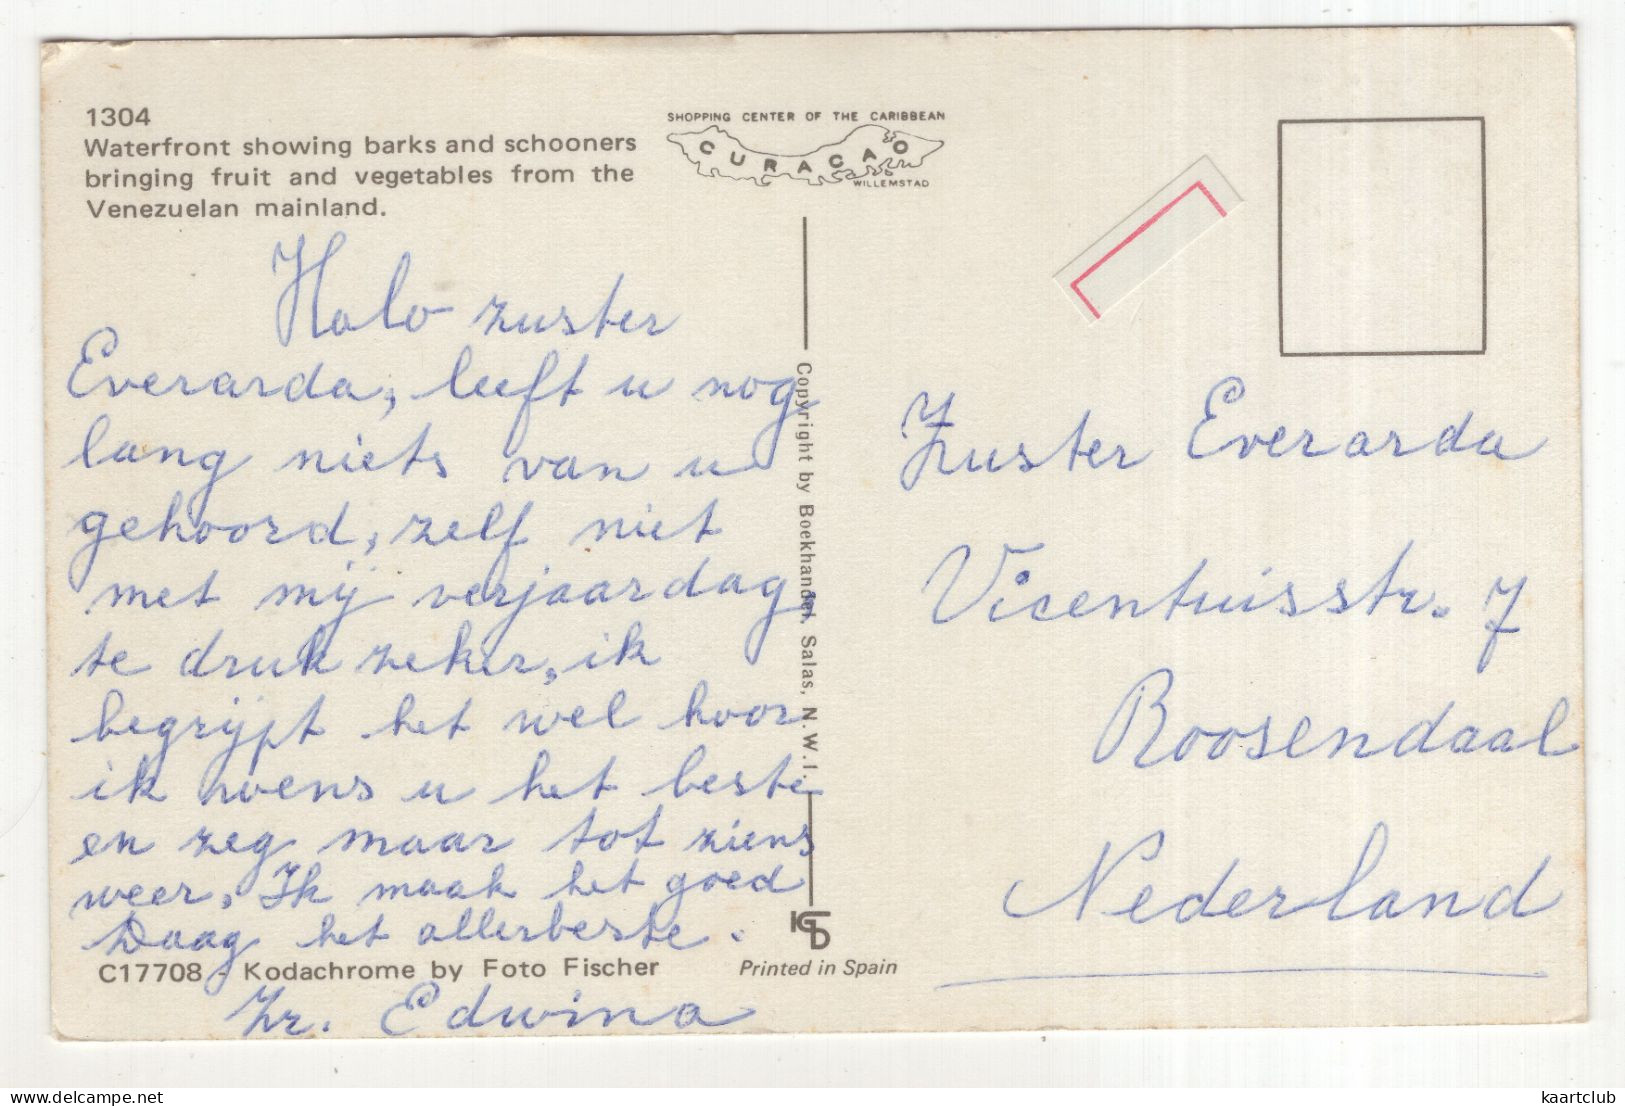 1304
Waterfront showing barks and schooners
bringing fruit and vegetables from the
Venezuelan mainland.
SHOPPING CENTER OF THE CARIBBEAN
CURACAO
WILLEMSTAD
Halo zuster
Everarda, leeft u nog
lang niets van u
gehoord, zelf niet
met mij verjaardag,
te druk zeker, ik
begrijpt het wel hoor
ik wens u het beste
en zeg maar tot ziens
weer, Ik maak het goed
Daag het allerbeste.
Zr. Edwina
C17708 - Kodachrome by Foto Fischer
Printed in Spain
Copyright by Boekhandel Salas, N.W.I.
Zuster Everarda
Vicentuisstr. 7
Roosendaal
Nederland
kaartclub
www.delcampe.net